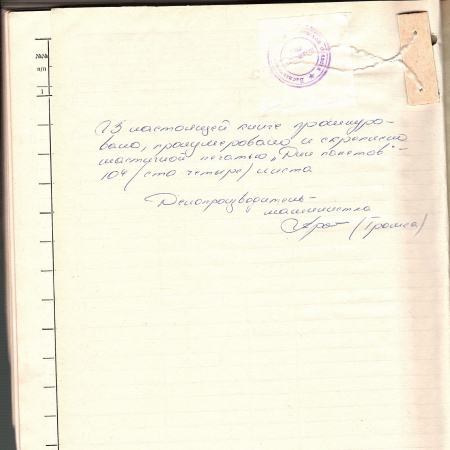 №№
п/п
1
В настоящей книге прошнуро-
вано, пронумеровано и скреплено
мастичной печатью „Для пакетов“-
104 (сто четыре) листа
Делопроизводитель-
машинистка
(Громса)